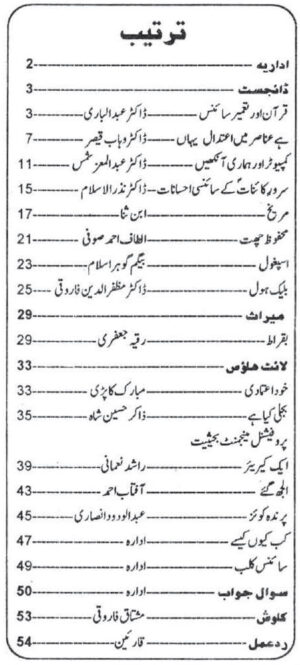 ترتیب
اداریہ 2
ڈائجسٹ 3
قرآن اور تعمیر سائنس ڈاکٹر عبدالباری 3
ہے عناصر میں اعتدال یہاں ڈاکٹر وہاب قیصر 7
کمپیوٹر اور ہماری آنکھیں ڈاکٹر عبدالمعز شمس 11
سرورِ کائناتؐ کے سائنسی احسانات ڈاکٹر نذرالاسلام 15
مریخ ابن ثنا 17
محفوظ چھت الطاف احمد صوفی 21
اسپغول بیگم گوہر اسلام 23
بلیک ہول ڈاکٹر مظفر الدین فاروقی 25
میراث 29
بقراط رقیہ جعفری 29
لائٹ ہاؤس 33
خود اعتمادی مبارک کاپڑی 33
بجلی کیا ہے ذاکر حسین شاہ 35
پروفیشنل مینجمنٹ بحیثیت
ایک کیریئر راشد نعمانی 39
الجھ گئے آفتاب احمد 43
پرندہ کوئز عبدالودود انصاری 45
کب کیوں کیسے ادارہ 47
سائنس کلب ادارہ 49
سوال جواب ادارہ 50
کاوش مشتاق فاروقی 53
ردعمل قارئین 54